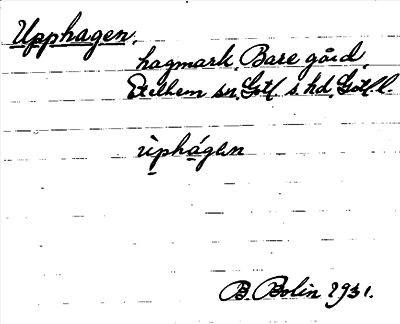 Upphagen,
hagmark, Bare gård,
Etelhem sn, Gotl. s. hd, Gotl. l.
ùphágen
B. Bolin 1931.